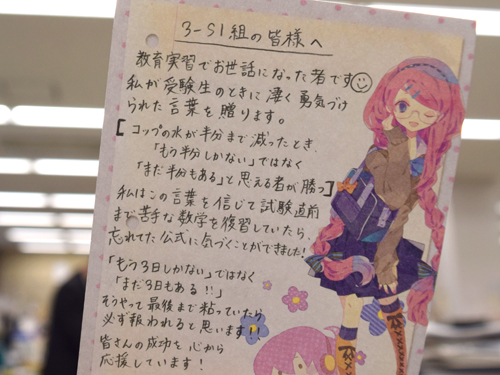 3-S1組の皆様へ
教育実習でお世話になった者です
私が受験生のときに凄く勇気づけ
られた言葉を贈ります。
[コップの水が半分まで減ったとき、
「もう半分しかない」ではなく
「まだ半分もある」と思える者が勝つ]
私はこの言葉を信じて試験直前
まで苦手な数学を復習していたら、
忘れてた公式に気づくことができました!
「もう3日しかない」ではなく
「まだ3日もある!!」
そうやって最後まで粘っていたら
必ず報われると思います!
皆さんの成功を心から
応援しています!